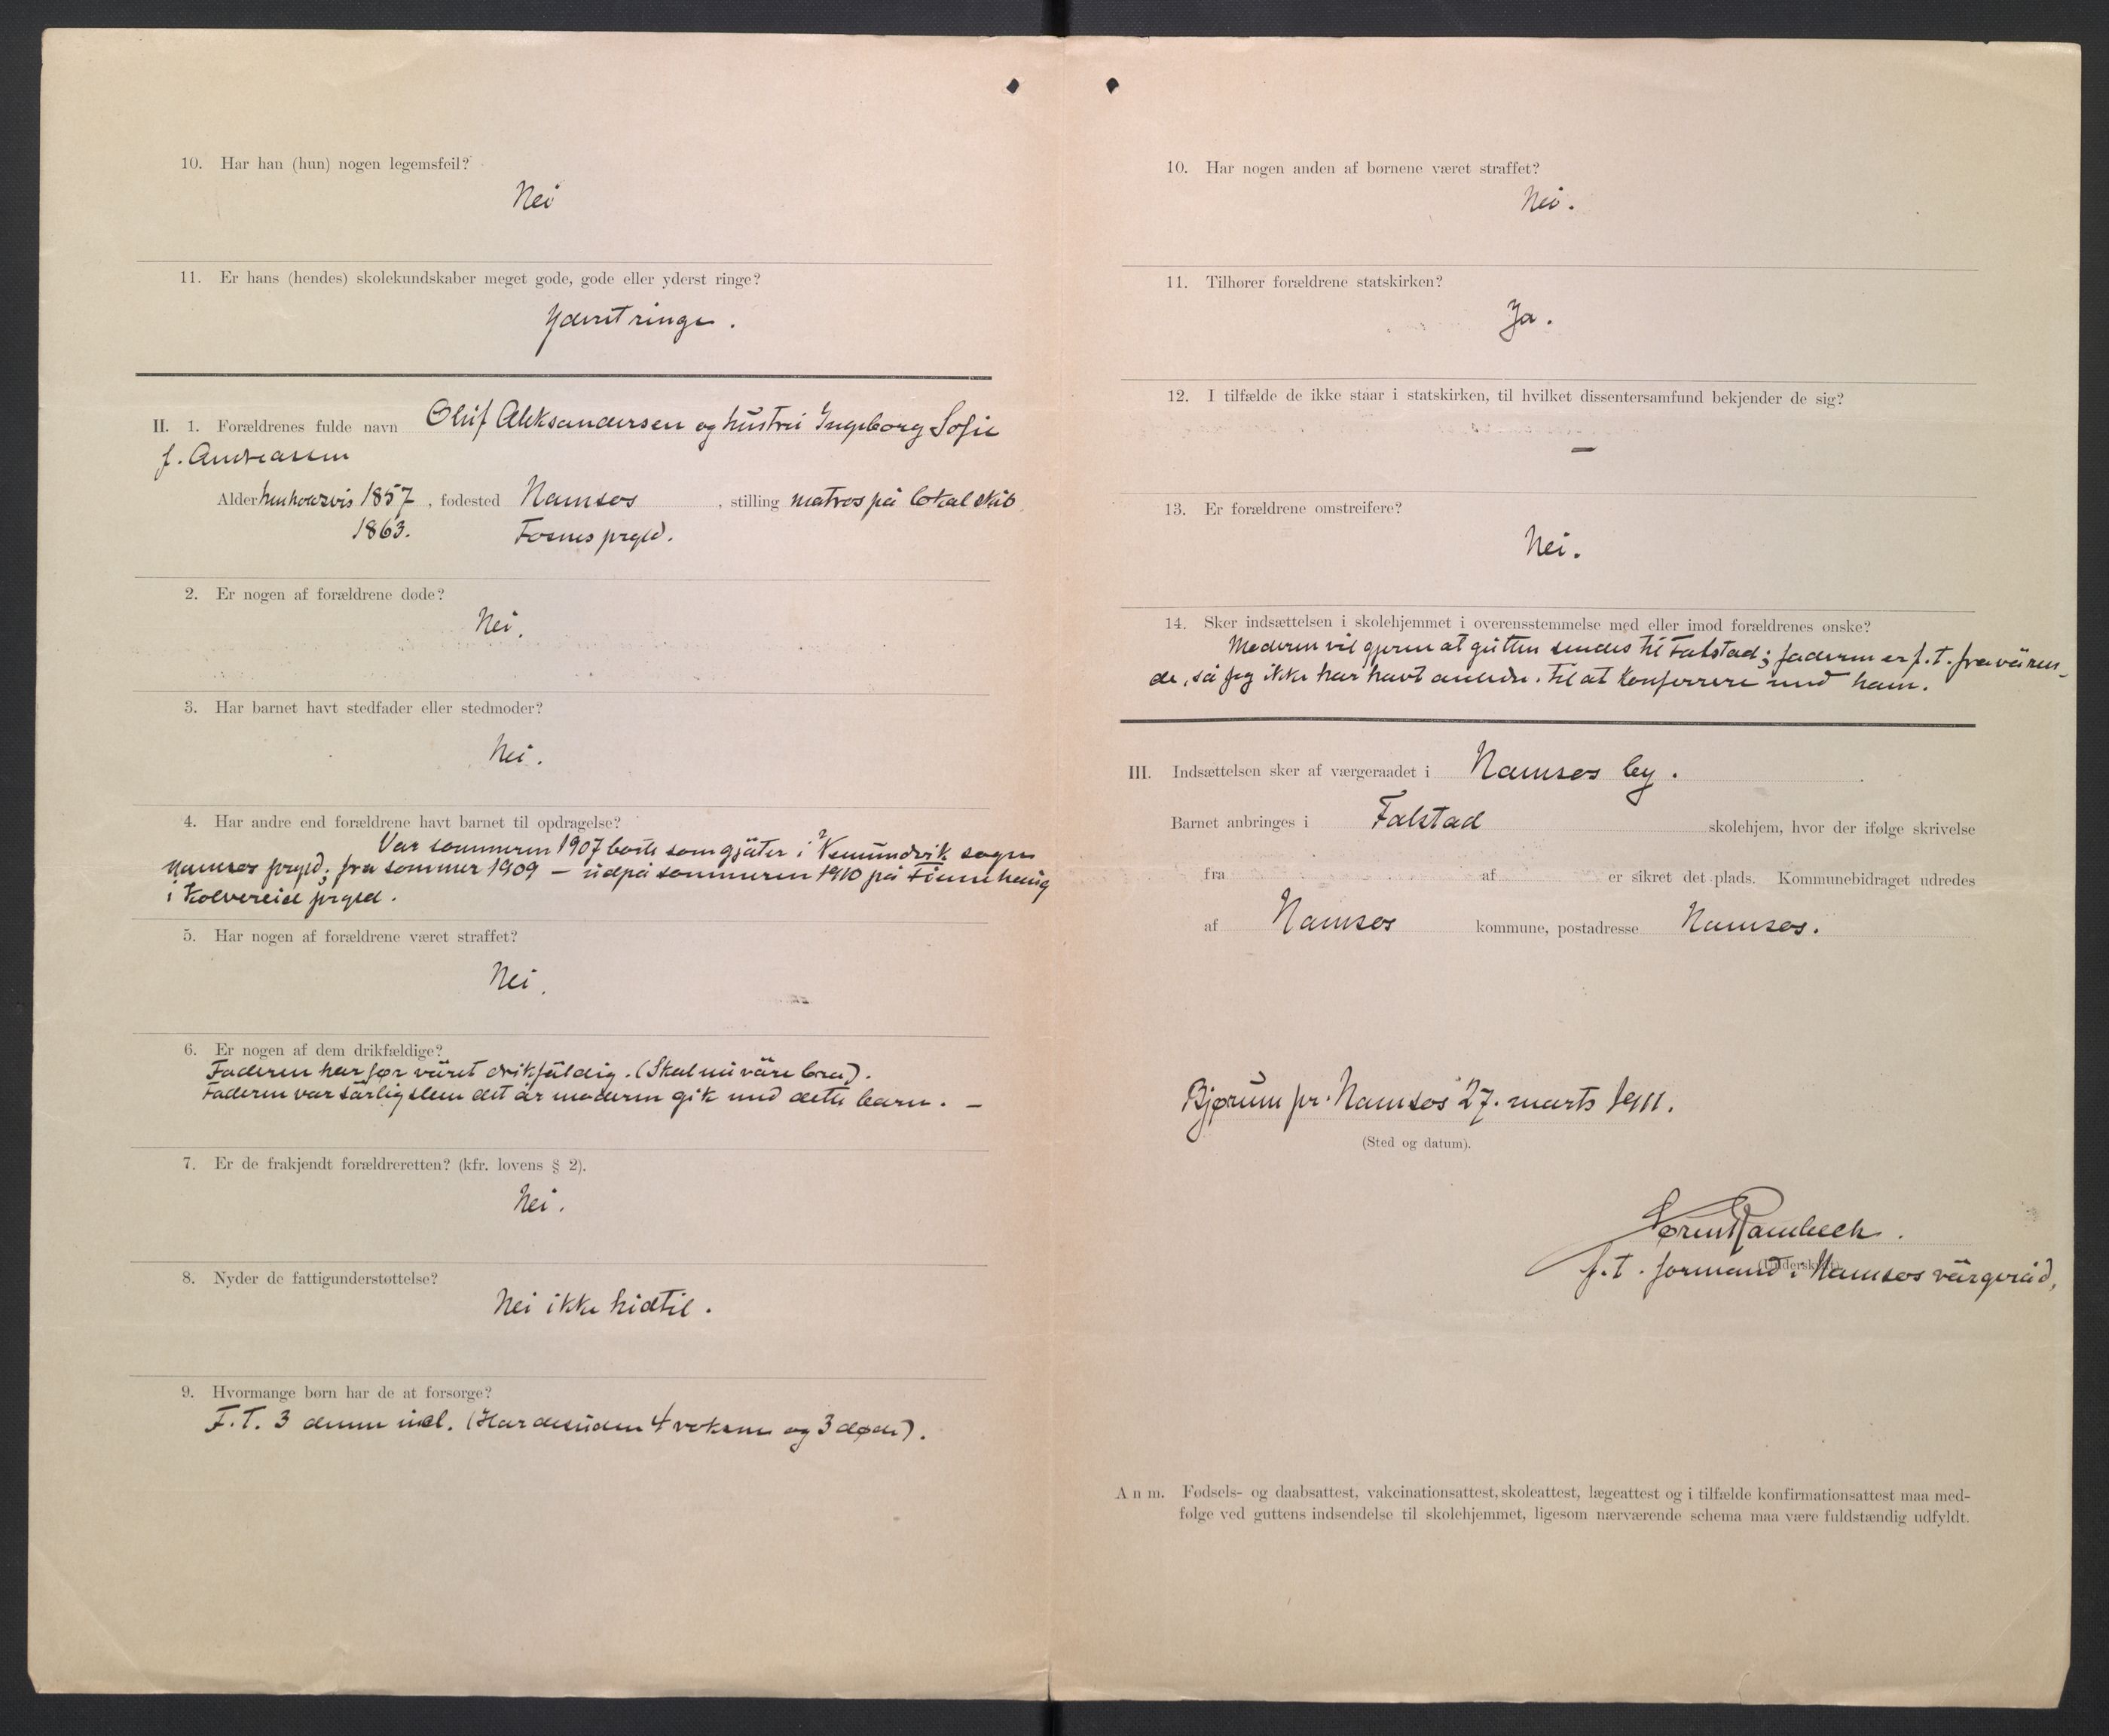 10. Har han (hun) nogen legemsfeil?
Nei
11. Er hans (hendes) skolekundskaber meget gode, gode eller yderst ringe?
Yderst ringe.
II. 1. Forældrenes fulde navn Oluf Aleksandersen og hustru Ingeborg Sofie
f. Andreassen
Alder henholdsvis 1857, fødested Namsos, stilling matros på lokalskib
1863. Fosnes prgld.
2. Er nogen af forældrene døde?
Nei.
3. Har barnet havt stedfader eller stedmoder?
Nei.
4. Har andre end forældrene havt barnet til opdragelse?
Var sommeren 1907 borte som gjäter i Vemundvik sogn
Namsos prgld; fra sommer 1909 – udpå sommeren 1910 på Finnehaug
i Kolvereid prgld.
5. Har nogen af forældrene været straffet?
Nei.
6. Er nogen af dem drikfældige?
Faderen har før väret drikfäldig. (Skal nu väre bra).
Faderen var särlig slem det år moderen gik med dette barn. –
7. Er de frakjendt forældreretten? (kfr. lovens § 2).
Nei.
8. Nyder de fattigunderstøttelse?
Nei ikke hidtil.
9. Hvormange børn har de at forsørge?
F.T. 3 denne incl. (Har desuden 4 voksne og 3 døde).
10. Har nogen anden af børnene været straffet?
Nei.
11. Tilhører forældrene statskirken?
Ja.
12. I tilfælde de ikke staar i statskirken, til hvilket dissentersamfund bekjender de sig?
–
13. Er forældrene omstreifere?
Nei.
14. Sker indsættelsen i skolehjemmet i overensstemmelse med eller imod forældrenes ønske?
Moderen vil gjerne at gutten sendes til Falstad; faderen er f.t. fravären-
de, så jeg ikke har havt anledn. til at konferrere med ham.
III. Indsættelsen sker af værgeraadet i Namsos by.
Barnet anbringes i Falstad skolehjem, hvor der ifølge skrivelse
fra af er sikret det plads. Kommunebidraget udredes
af Namsos kommune, postadresse Namsos.
Bjørum pr. Namsos 27. marts 1911.
(Sted og datum).
Søren Rambech.
(Underskrift).
f.t. formand i Namsos värgeråd,
Anm. Fødsels- og daabsattest, vakcinationsattest, skoleattest, lægeattest og i tilfælde konfirmationsattest maa med-
følge ved guttens indsendelse til skolehjemmet, ligesom nærværende schema maa være fuldstændig udfyldt.